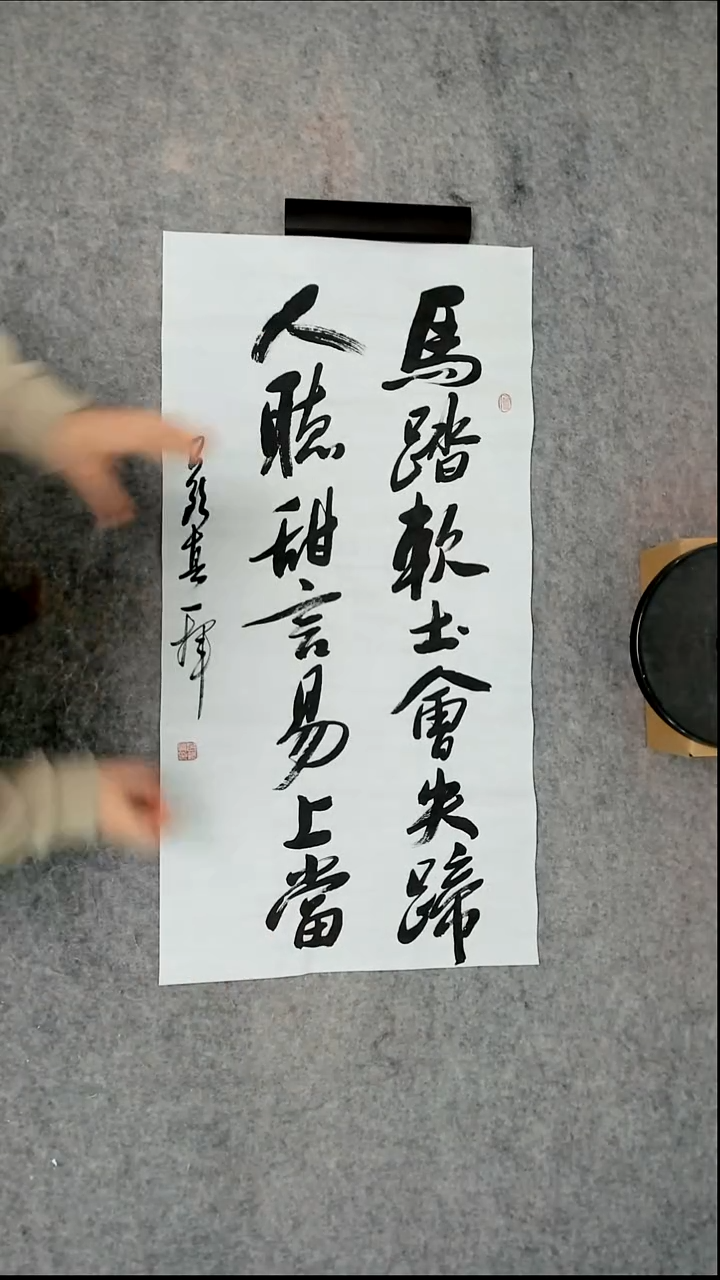 馬踏軟土會失蹄
人聽甜言易上當